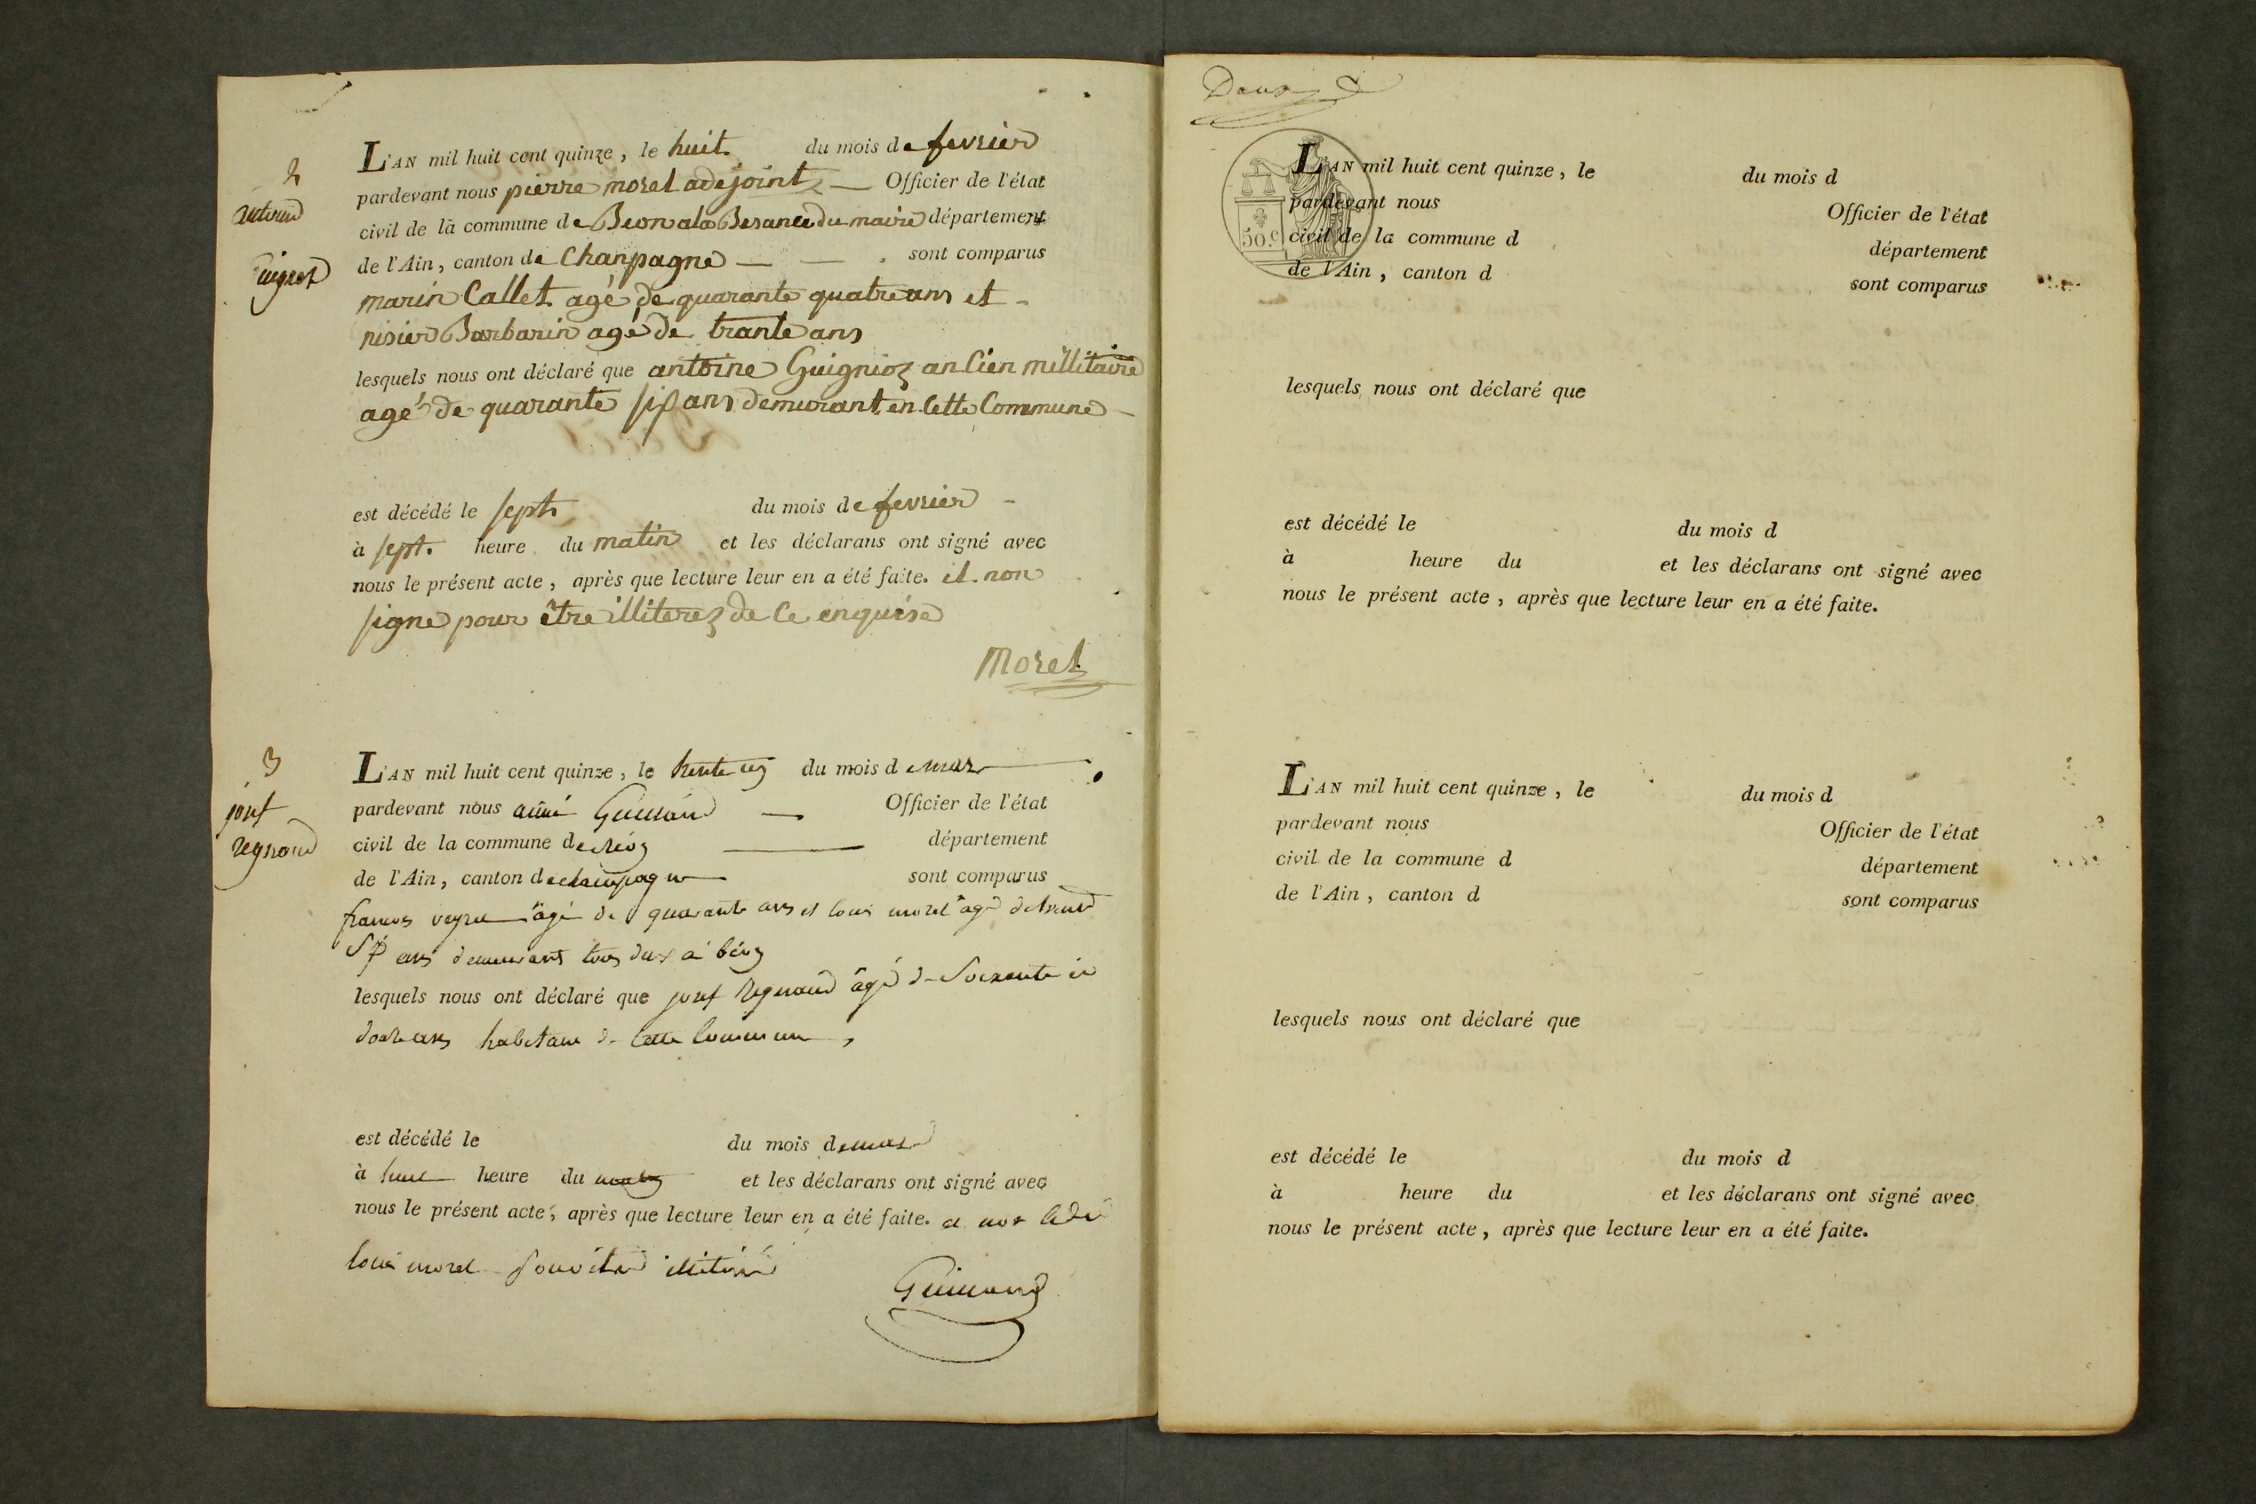 2
Guignoz
L'AN mil huit cent quinze, le huit du mois de fevrier
pardevant nous pierre morel adejoint Officier de l'état
civil de la commune de Beon ala Besance du maire département
de l'Ain, canton de Chanpagne sont comparus
marin Callet agé de quarante quatre ans et
nisier Barbarin agé de trante ans
lesquels nous ont déclaré que antoine Guignioz an Cien millitaire
agé de quarante six ans demeurant en Cette Commune
est décédé le sept du mois de fevrier
à sept heure du matin et les déclarans ont signé avec
nous le présent acte, après que lecture leur en a été faite. et non
signe pour être illiterez de Ce enquise
Morel
3
josef
regnaud
L'AN mil huit cent quinze, le trente un du mois de mars
pardevant nous aimé Officier de l'état
civil de la commune de département
de l'Ain, canton de champagne sont comparus
francois agé de quarante ans et louis morel agé de
ans demeurant tous deux a
lesquels nous ont déclaré que josef Regnaud âgé de Soixante et
douze ans habitant de Cette Commune
est décédé le du mois de mars
à heure du matin et les déclarans ont signé avec
nous le présent acte, après que lecture leur en a été faite.
louis morel illitéré
Deux
50.c
L'AN mil huit cent quinze, le du mois d
pardevant nous Officier de l'état
civil de la commune d département
de l'Ain, canton d sont comparus
lesquels nous ont déclaré que
est décédé le du mois d
à heure du et les déclarans ont signé avec
nous le présent acte, après que lecture leur en a été faite.
L'AN mil huit cent quinze, le du mois d
pardevant nous Officier de l'état
civil de la commune d département
de l'Ain, canton d sont comparus
lesquels nous ont déclaré que
est décédé le du mois d
à heure du et les déclarans ont signé avec
nous le présent acte, après que lecture leur en a été faite.